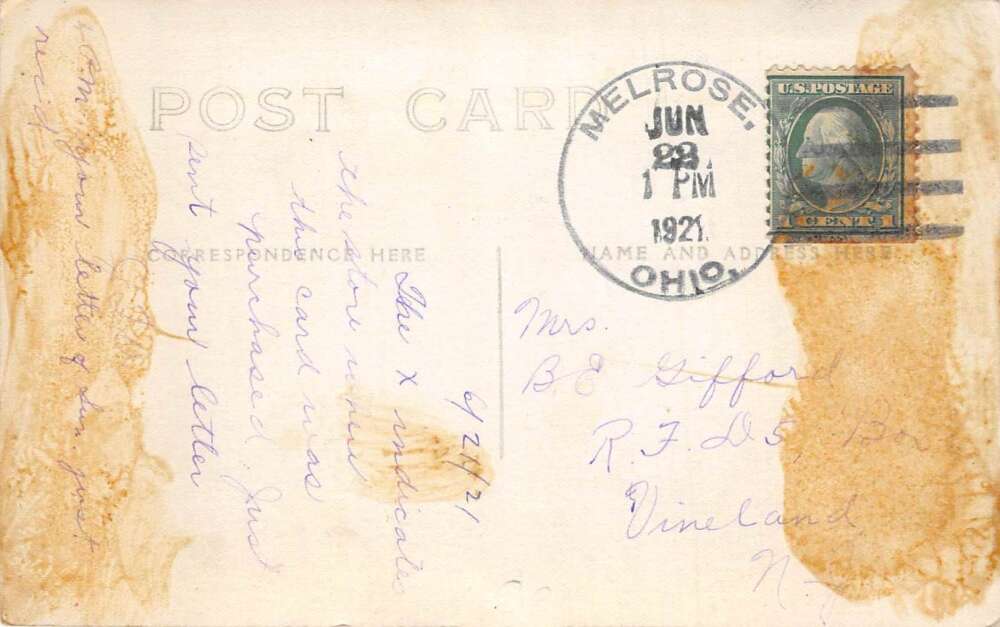 POST CARD
MELROSE,
JUN
22
1 PM
1921.
OHIO.
U.S. POSTAGE
1 CENT 1
CORRESPONDENCE HERE
NAME AND ADDRESS HERE
6/21/21
The X indicates
the store where
this card was
purchased. Just
sent your letter
P.M. your letter of Sun. just
rec'd
Mrs.
B E Gifford
R. F. D. 5, Bo
Vineland
N.